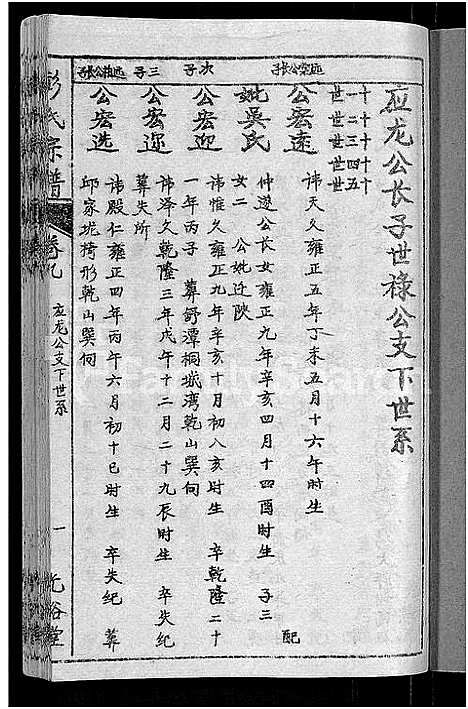 应龙公长子世禄公支下世系
十一世
十二世
十三世
十四世
十五世
远荣公长子
公宏远
讳天久雍正五年丁未五月十六午时生 配
妣吴氏
仲逆公长女雍正九年辛亥四月十四酉时生 子三
女二 公妣迁陕
次子
公宏迎
讳惟久雍正九年辛亥十月初八亥时生 卒乾隆二十
一年丙子 葬舒潭桐城湾乾山巽向
三子
公宏迩
讳泽久乾隆三年戊午十二月二十九辰时生 卒失纪
葬失所
公长子
公宏选
讳殿仁雍正四年丙午六月初十巳时生 卒失纪 葬
邱家坭椅形乾山巽向
彭氏宗谱
卷九
应龙公支下世系
一
光裕堂